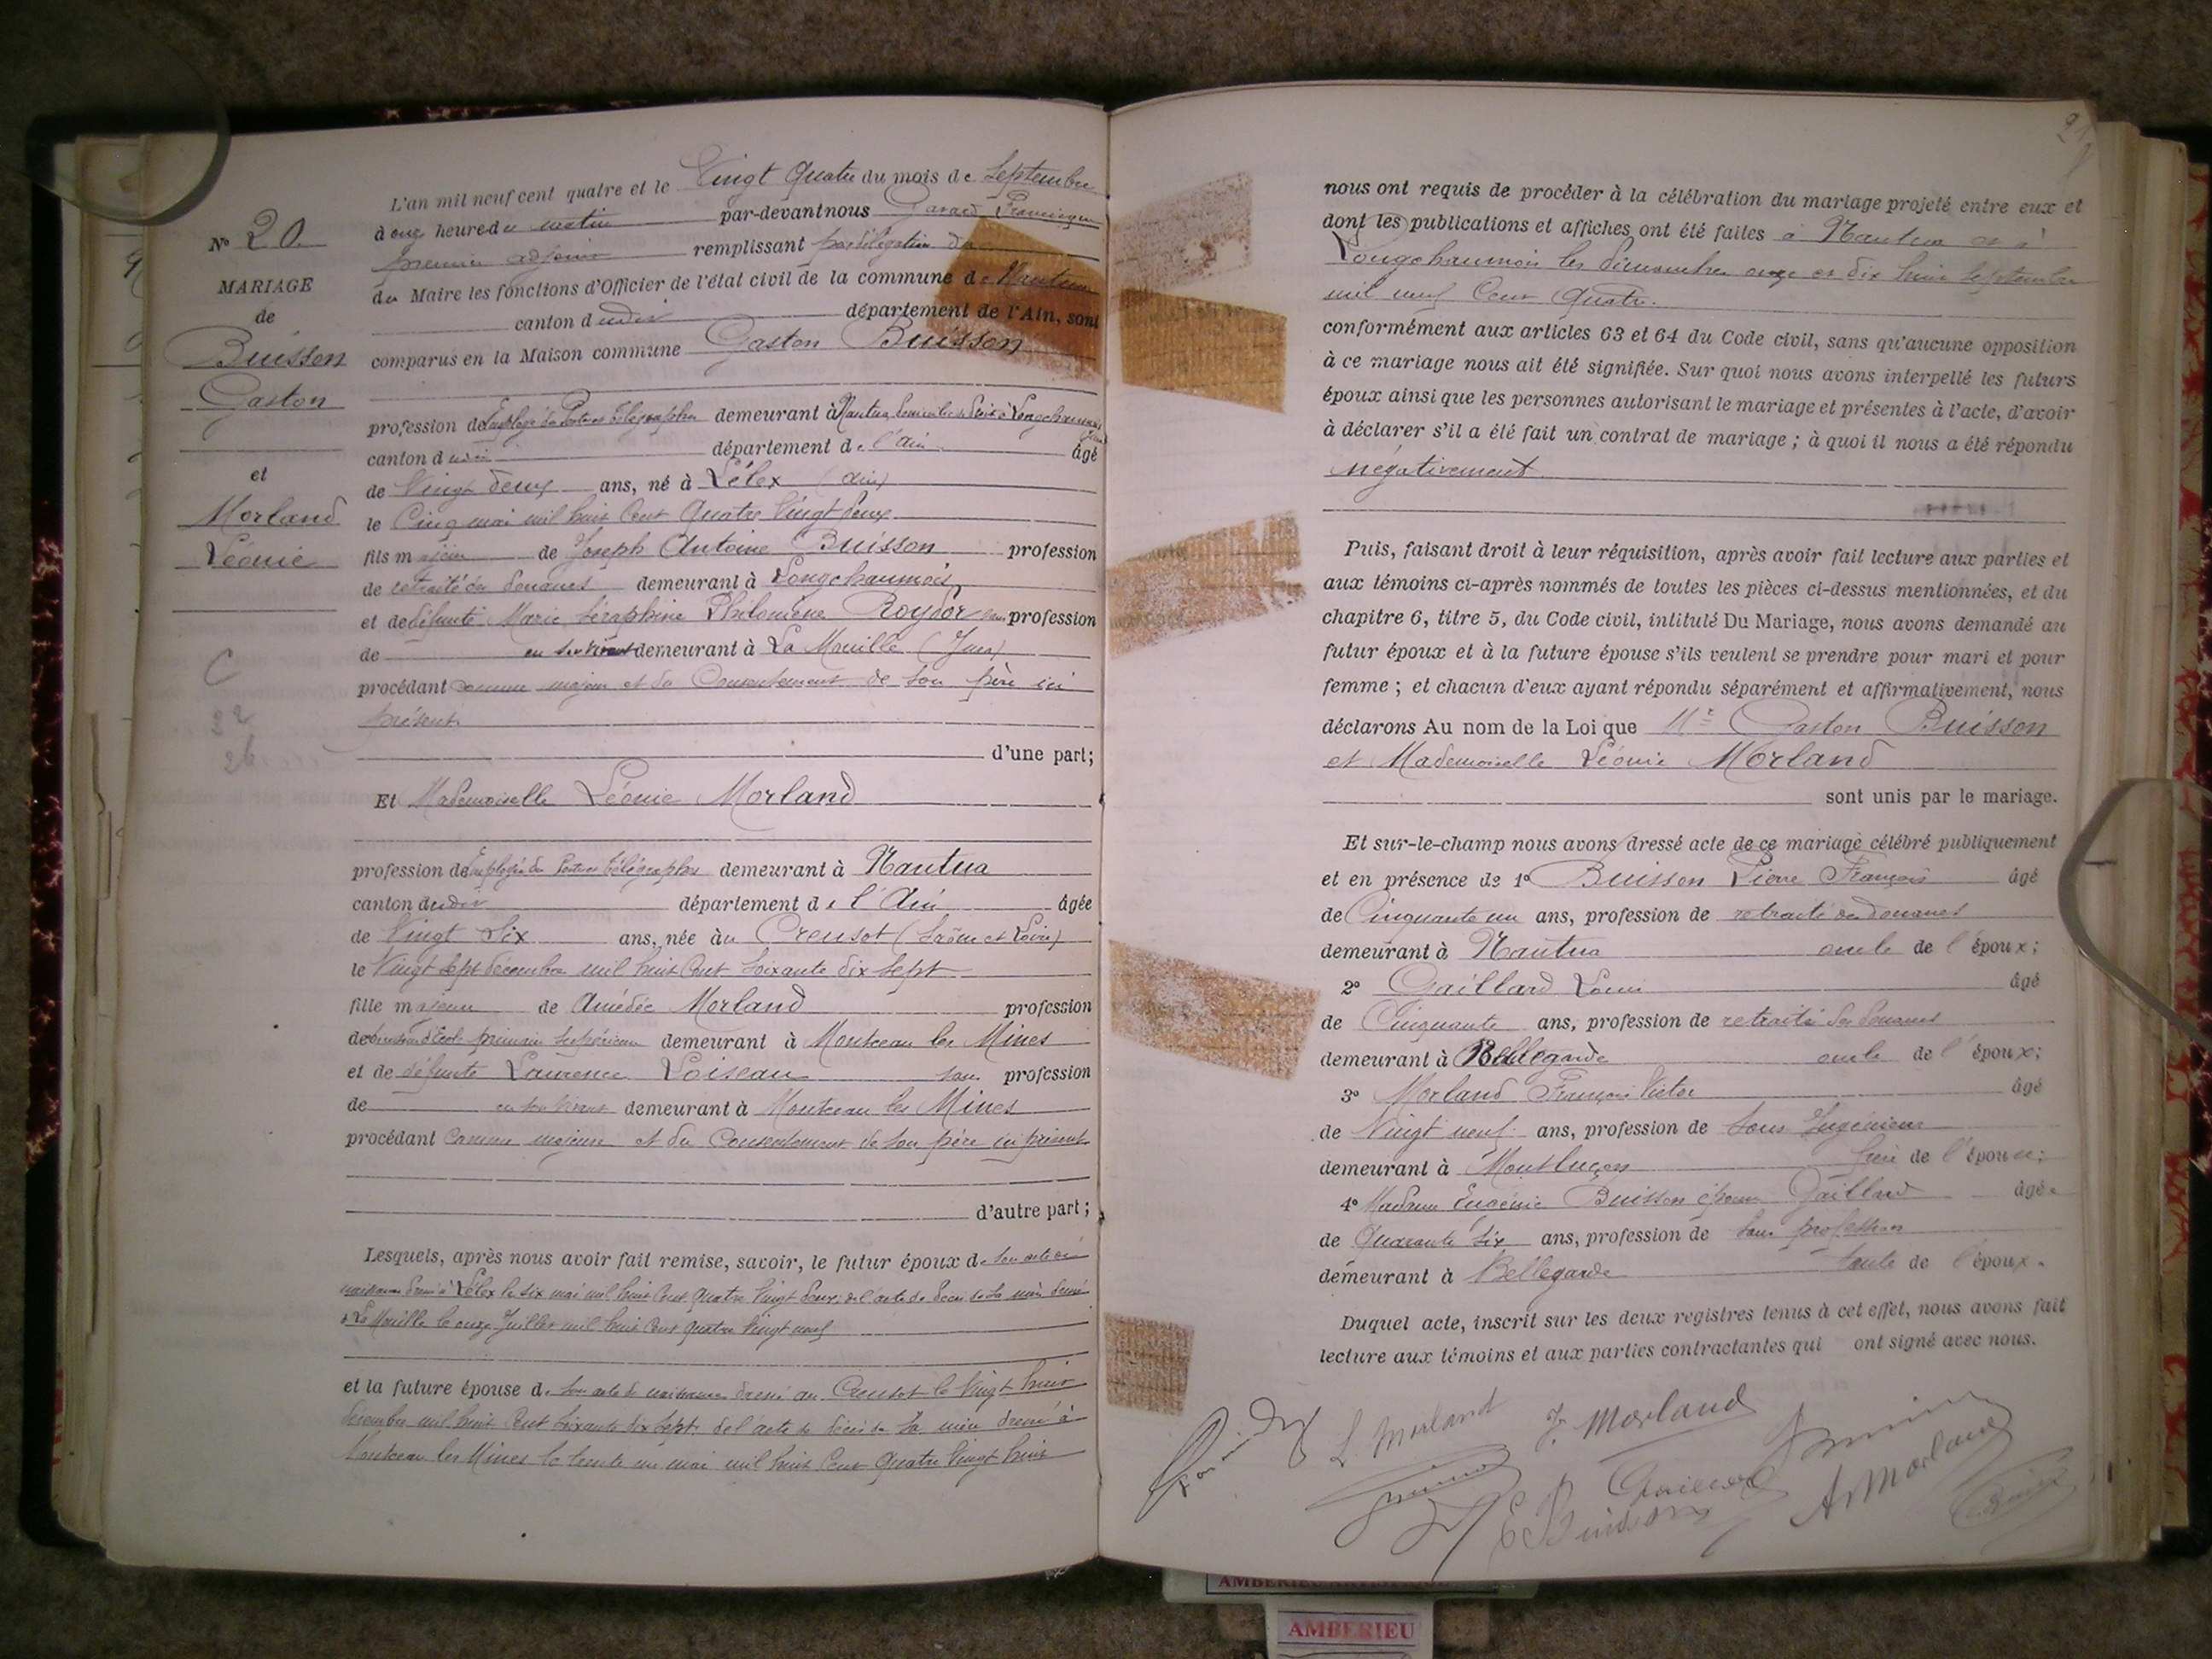 L'an mil neuf cent quatre et le Vingt Quatre du mois de Septembre
à onze heures du matin par-devant nous Francisque
premier adjoint remplissant par délégation
du Maire les fonctions d'Officier de l'état civil de la commune de Nantua
canton dudit département de l'Ain, sont
comparus en la Maison commune Gaston Buisson
N° 20
MARIAGE
de
Buisson
Gaston
et
Morland
Léonie
C
22
26
profession de Employé des Postes et Télégraphes demeurant à Nantua domicilié de droit à Longchaumois
(Jura)
canton dudit département de l'Ain âgé
de Vingt deux ans, né à Lélex (Ain)
le Cinq mai mil huit Cent Quatre Vingt deux
fils majeur de Joseph Antoine Buisson profession
de retraité des douanes demeurant à Longchaumois
et de défunte Marie Séraphine Philomène Roydor sans profession
de en son vivant demeurant à La Mouille (Jura)
procédant comme majeur et du Consentement de son père ici
présent
d'une part;
Et Mademoiselle Léonie Morland
profession de Employée des Postes et Télégraphes demeurant à Nantua
canton dudit département de l'Ain âgée
de Vingt Six ans, née au Creusot (Saône et Loire)
le Vingt Sept décembre mil huit Cent Soixante dix Sept
fille majeure de Amédée Morland profession
de directeur d'Ecole primaire Supérieure demeurant à Montceau les Mines
et de défunte Laurence Loiseau sans profession
de en son vivant demeurant à Montceau les Mines
procédant Comme majeure et du Consentement de son père ici présent
d'autre part;
Lesquels, après nous avoir fait remise, savoir, le futur époux de Son acte de
naissance dressé à Lélex le six mai mil huit Cent Quatre Vingt deux; de l'acte de décès de sa mère dressé
à La Mouille le onze Juillet mil huit Cent quatre Vingt neuf
et la future épouse de Son acte de naissance dressé au Creusot le Vingt huit
décembre mil huit Cent Soixante dix Sept; de l'acte de décès de sa mère dressé à
Montceau les Mines le trente un mai mil huit Cent Quatre Vingt huit
nous ont requis de procéder à la célébration du mariage projeté entre eux et
dont les publications et affiches ont été faites à Nantua et à
Longchaumois les dimanches onze et dix huit Septembre
mil neuf Cent Quatre.
conformément aux articles 63 et 64 du Code civil, sans qu'aucune opposition
à ce mariage nous ait été signifiée. Sur quoi nous avons interpellé les futurs
époux ainsi que les personnes autorisant le mariage et présentes à l'acte, d'avoir
à déclarer s'il a été fait un contrat de mariage ; à quoi il nous a été répondu
négativement
Puis, faisant droit à leur réquisition, après avoir fait lecture aux parties et
aux témoins ci-après nommés de toutes les pièces ci-dessus mentionnées, et du
chapitre 6, titre 5, du Code civil, intitulé Du Mariage, nous avons demandé au
futur époux et à la future épouse s'ils veulent se prendre pour mari et pour
femme ; et chacun d'eux ayant répondu séparément et affirmativement, nous
déclarons Au nom de la Loi que Mr Gaston Buisson
et Mademoiselle Léonie Morland
sont unis par le mariage.
Et sur-le-champ nous avons dressé acte de ce mariage célébré publiquement
et en présence de 1° Buisson Pierre François âgé
de Cinquante un ans, profession de retraité des douanes
demeurant à Nantua oncle de l'époux;
2° Gaillard Louis âgé
de Cinquante ans, profession de retraité des douanes
demeurant à Bellegarde oncle de l'époux;
3° Morland François Victor âgé
de Vingt neuf ans, profession de Sous Ingénieur
demeurant à Montluçon frère de l'épouse;
4° Madame Eugénie Buisson épouse Gaillard âgée
de Quarante Six ans, profession de sans profession
demeurant à Bellegarde tante de l'époux.
Duquel acte, inscrit sur les deux registres tenus à cet effet, nous avons fait
lecture aux témoins et aux parties contractantes qui ont signé avec nous.
L Morland
F. Morland
Gaillard
E Buisson
A. Morland
Buisson
AMBERIEU